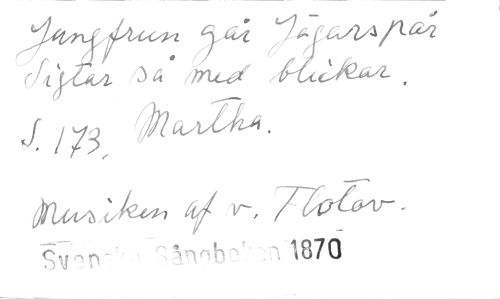 Jungfrun går Jägarspår
Sigtar så med blickar.
S. 173. Martha.
Musiken af v. Flotov.
Svenska Sångboken 1870